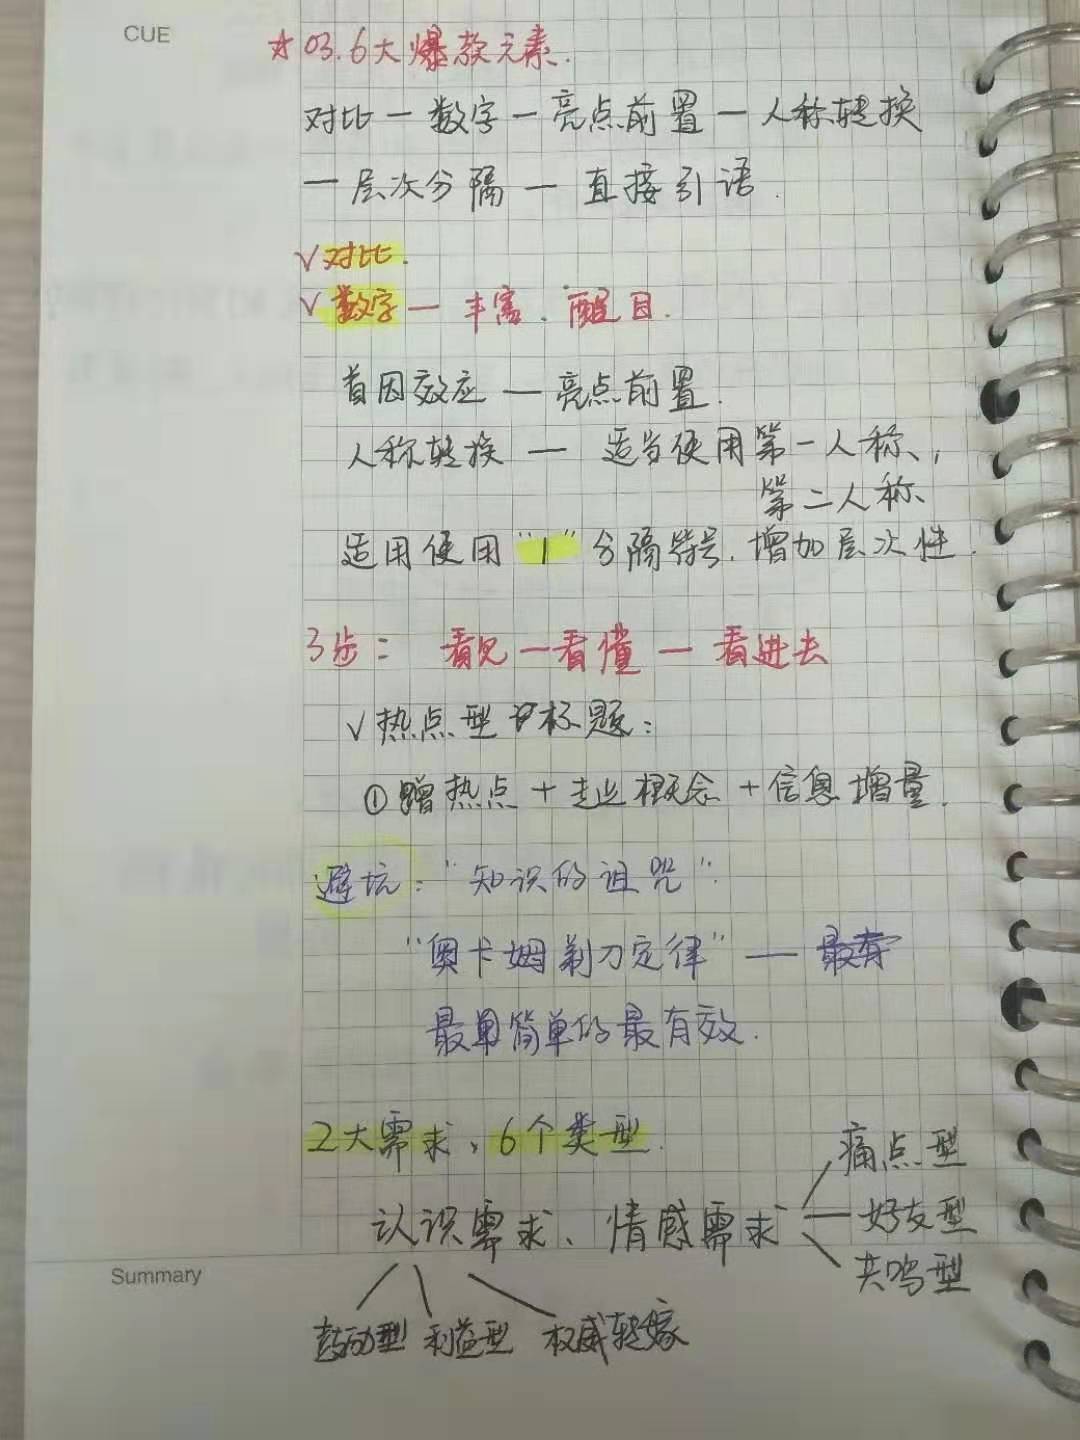 CUE
☆03.6大爆款元素.
对比—数字—亮点前置—人称转换
—层次分隔—直接引语.
√对比.
√数字—丰富.醒目.
首因效应—亮点前置.
人称转换—适当使用第一人称,
第二人称
适用使用"|"分隔符号.增加层次性.
3步: 看见—看懂—看进去
√热点型标题:
①蹭热点+造概念+信息增量.
避坑:"知识的诅咒".
"奥卡姆剃刀定律"—
最简单的最有效.
2大需求,6个类型.
认识需求、情感需求
痛点型
好友型
共鸣型
Summary
鼓动型 利益型 权威转嫁